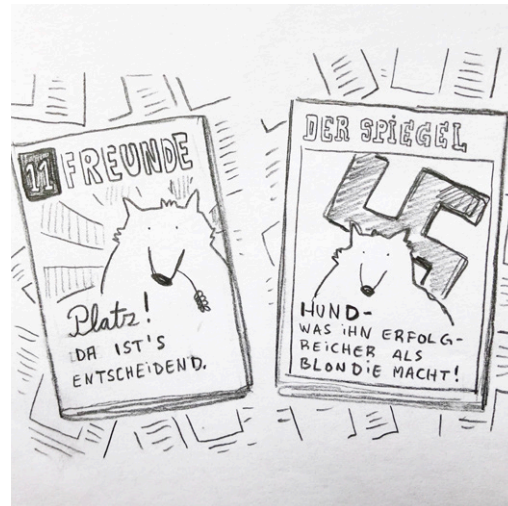 11 FREUNDE
Platz!
DA IST'S
ENTSCHEIDEND.
DER SPIEGEL
HUND-
WAS IHN ERFOLG-
REICHER ALS
BLONDIE MACHT!